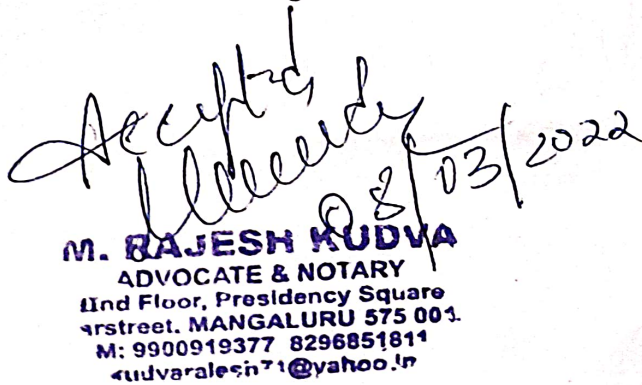 Accepted
08/03/2022
M. RAJESH KUDVA
ADVOCATE & NOTARY
IInd Floor, Presidency Square
arstreet. MANGALURU 575 001.
M: 9900919377 8296851811
kudvarajesh71@yahoo.in